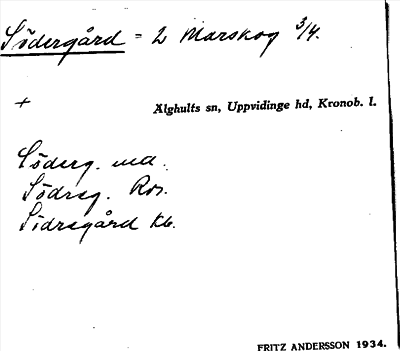 Södergård = 2 Marskog 3/4.
+
Älghults sn, Uppvidinge hd, Kronob. l.
Söderg. ned.
Södreg. Ros.
Södregård kb.
FRITZ ANDERSSON 1934.